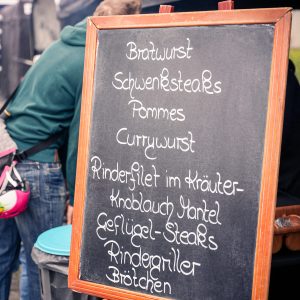 Bratwurst
Schwenksteaks
Pommes
Currywurst
Rinderfilet im Kräuter-
Knoblauch Mantel
Geflügel-Steaks
Rindergriller
Brötchen